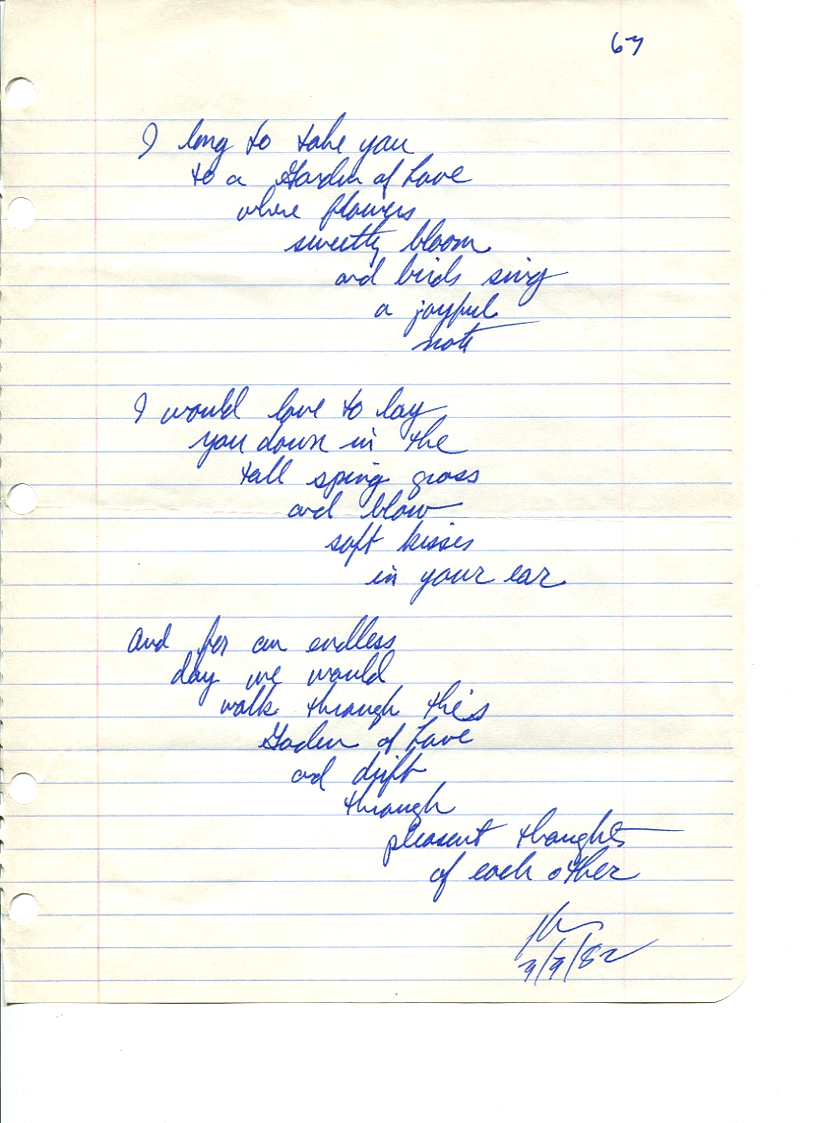 67
I long to take you
to a Garden of Love
where flowers
sweetly bloom
and birds sing
a joyful
note
I would love to lay
you down in the
tall sping grass
and blow
soft kisses
in your ear
And for an endless
day we would
walk through this
Garden of Love
and drift
through
pleasent thoughts
of each other
9/9/82